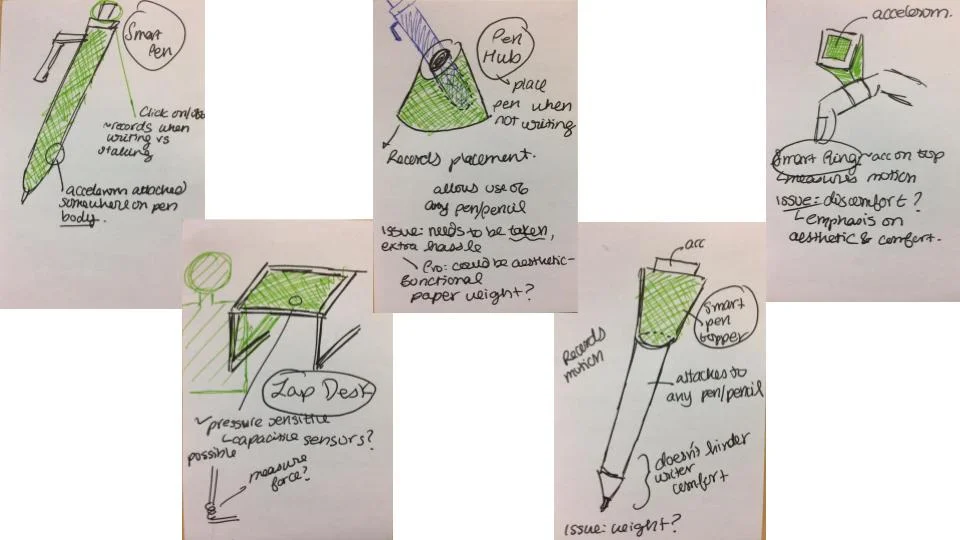 Smart
Pen
Click on/
~records when
writing vs
accelerom attached
somewhere on pen
body.
Pen
Hub
place
pen when
not writing
Records placement.
allows use of
any pen/pencil
issue: needs to be taken,
extra hassle
Pro: could be aesthetic-
functional
paper weight?
accelerom.
Smart Ring ~acc on top
measures motion
issue: discomfort?
emphasis on
aesthetic & comfort.
Lap Desk
~pressure sensitive
capacitive sensors?
possible
measure
force?
acc
Smart
pen
topper
Records
motion
attaches to
any pen/pencil
doesn't hinder
writer
comfort
issue: weight?